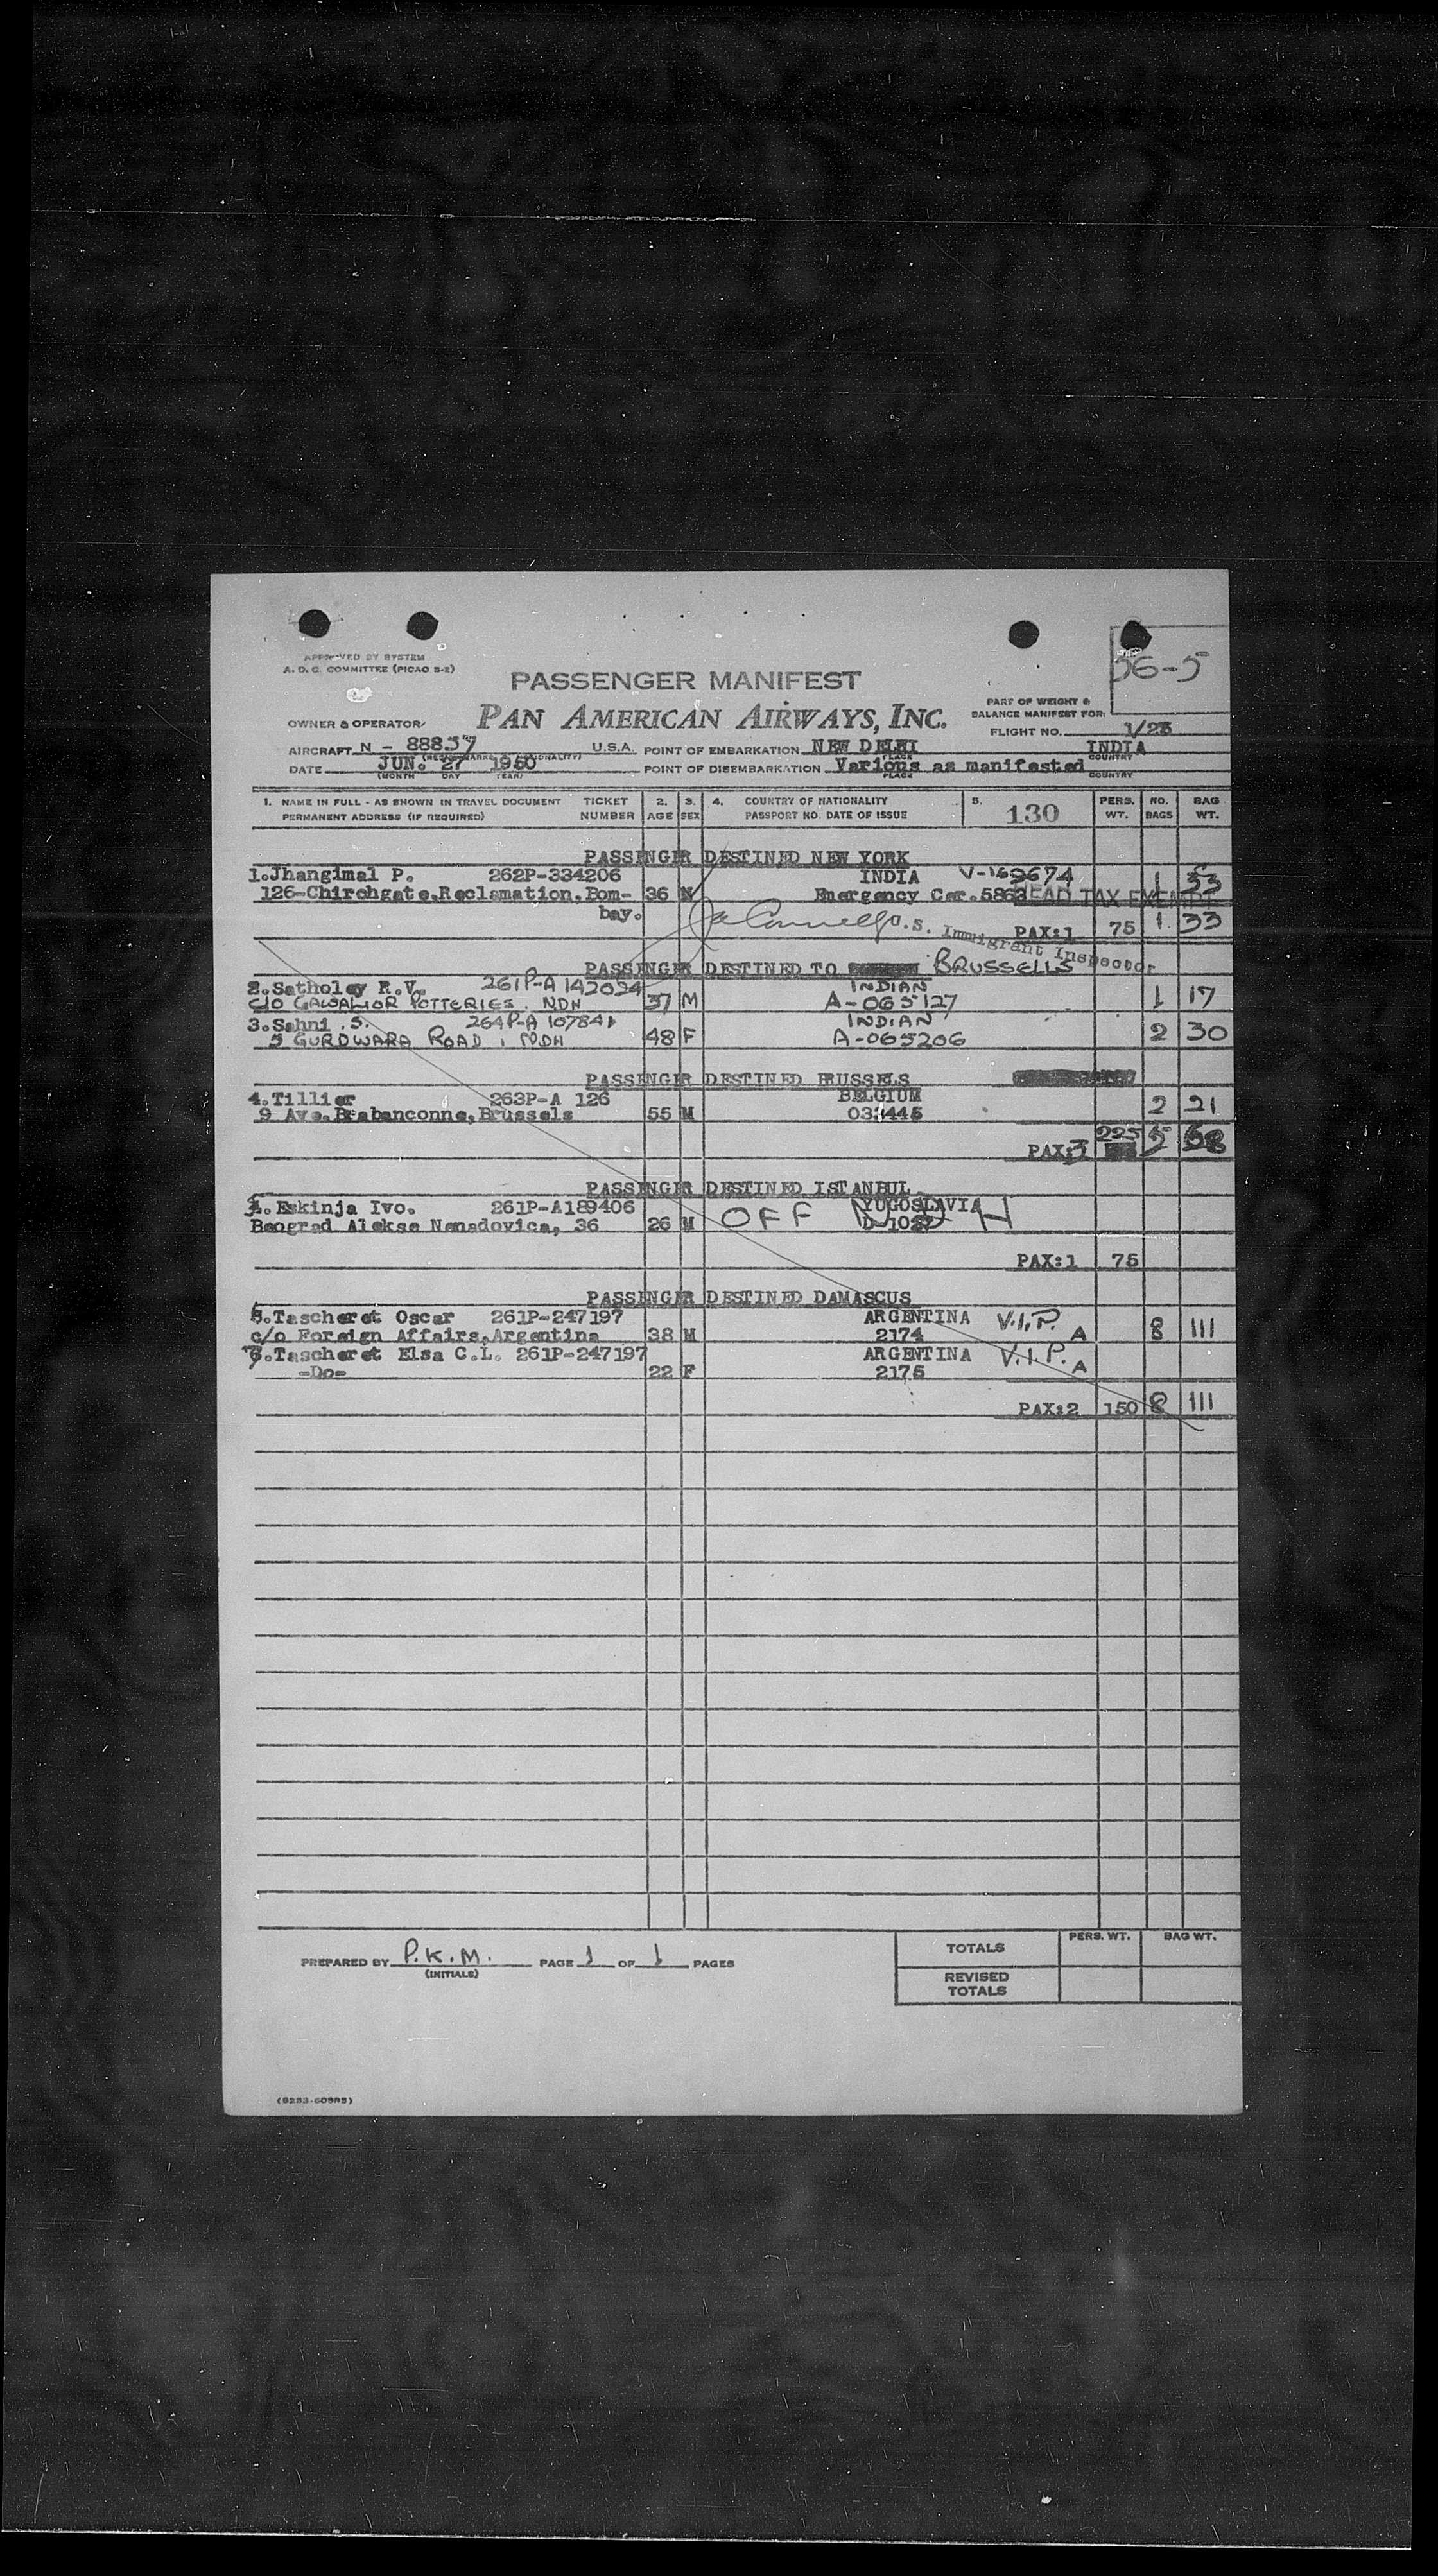 APPROVED BY SYSTEM
A. D. C. COMMITTEE (PICAO S-2)
56-5
PASSENGER MANIFEST
PART OF WEIGHT &
BALANCE MANIFEST FOR:
OWNER & OPERATOR
PAN AMERICAN AIRWAYS, INC.
FLIGHT NO. 1/23
AIRCRAFT N - 88857 U.S.A. POINT OF EMBARKATION NEW DELHI INDIA
PLACE COUNTRY
DATE JUN. 27 1950 POINT OF DISEMBARKATION Various as manifested
(MONTH DAY YEAR) PLACE COUNTRY
1. NAME IN FULL - AS SHOWN IN TRAVEL DOCUMENT TICKET 2. 3. 4. COUNTRY OF NATIONALITY 5. 130 PERS. NO. BAG
PERMANENT ADDRESS (IF REQUIRED) NUMBER AGE SEX PASSPORT NO. DATE OF ISSUE WT. BAGS WT.
PASSENGER DESTINED NEW YORK
1.Jhangimal P. 262P-334206 INDIA 1 33
126-Chirchgate,Reclamation,Bom- 36 M Emergency Cer.5863 HEAD TAX EXEMPT
bay. U.S. Immigrant Inspector PAX:1 75 1 33
PASSENGER DESTINED TO BRUSSELLS
2.Satholey R.V. 261P-A 142024 INDIAN
C/O GAWALIOR POTTERIES, NDH 37 M A-065127 1 17
3.Sahni .S. 264P-A 107841 INDIAN
5 GURDWARA ROAD, NDH 48 F A-065206 2 30
PASSENGER DESTINED BRUSSELS
4.Tillier 263P-A 126 BELGIUM
9 Ave.Brabanconne,Brussels 55 M 033445 2 21
PAX:3 225 5 68
PASSENGER DESTINED ISTANBUL
4.Eskinja Ivo. 261P-A189406 YUGOSLAVIA
Beograd Alekse Nenadovica, 36 26 M OFF NDH
PAX:1 75
PASSENGER DESTINED DAMASCUS
5.Tascheret Oscar 261P-247197 ARGENTINA V.I.P.
c/o Foreign Affairs,Argentina 38 M 2174 A 8 111
6.Tascheret Elsa C.L. 261P-247197 ARGENTINA V.I.P.
-Do- 22 F 2175 A
PAX:2 150 8 111
PREPARED BY P.K.M. PAGE 1 OF 1 PAGES
(INITIALS)
PERS. WT. BAG WT.
TOTALS
REVISED
TOTALS